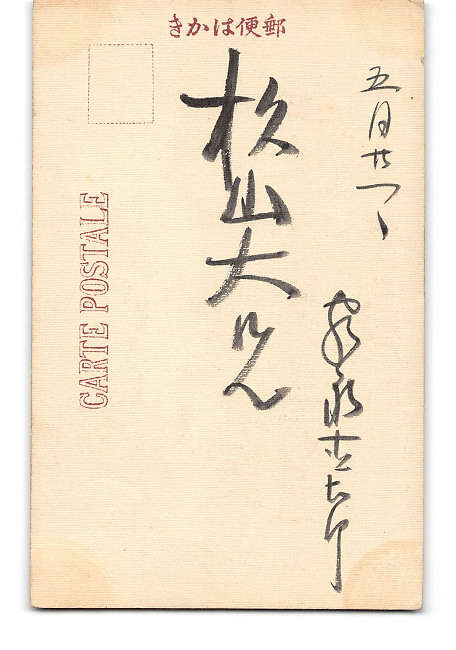 郵便はかき
五月廿一日
杉山大兄
CARTE POSTALE